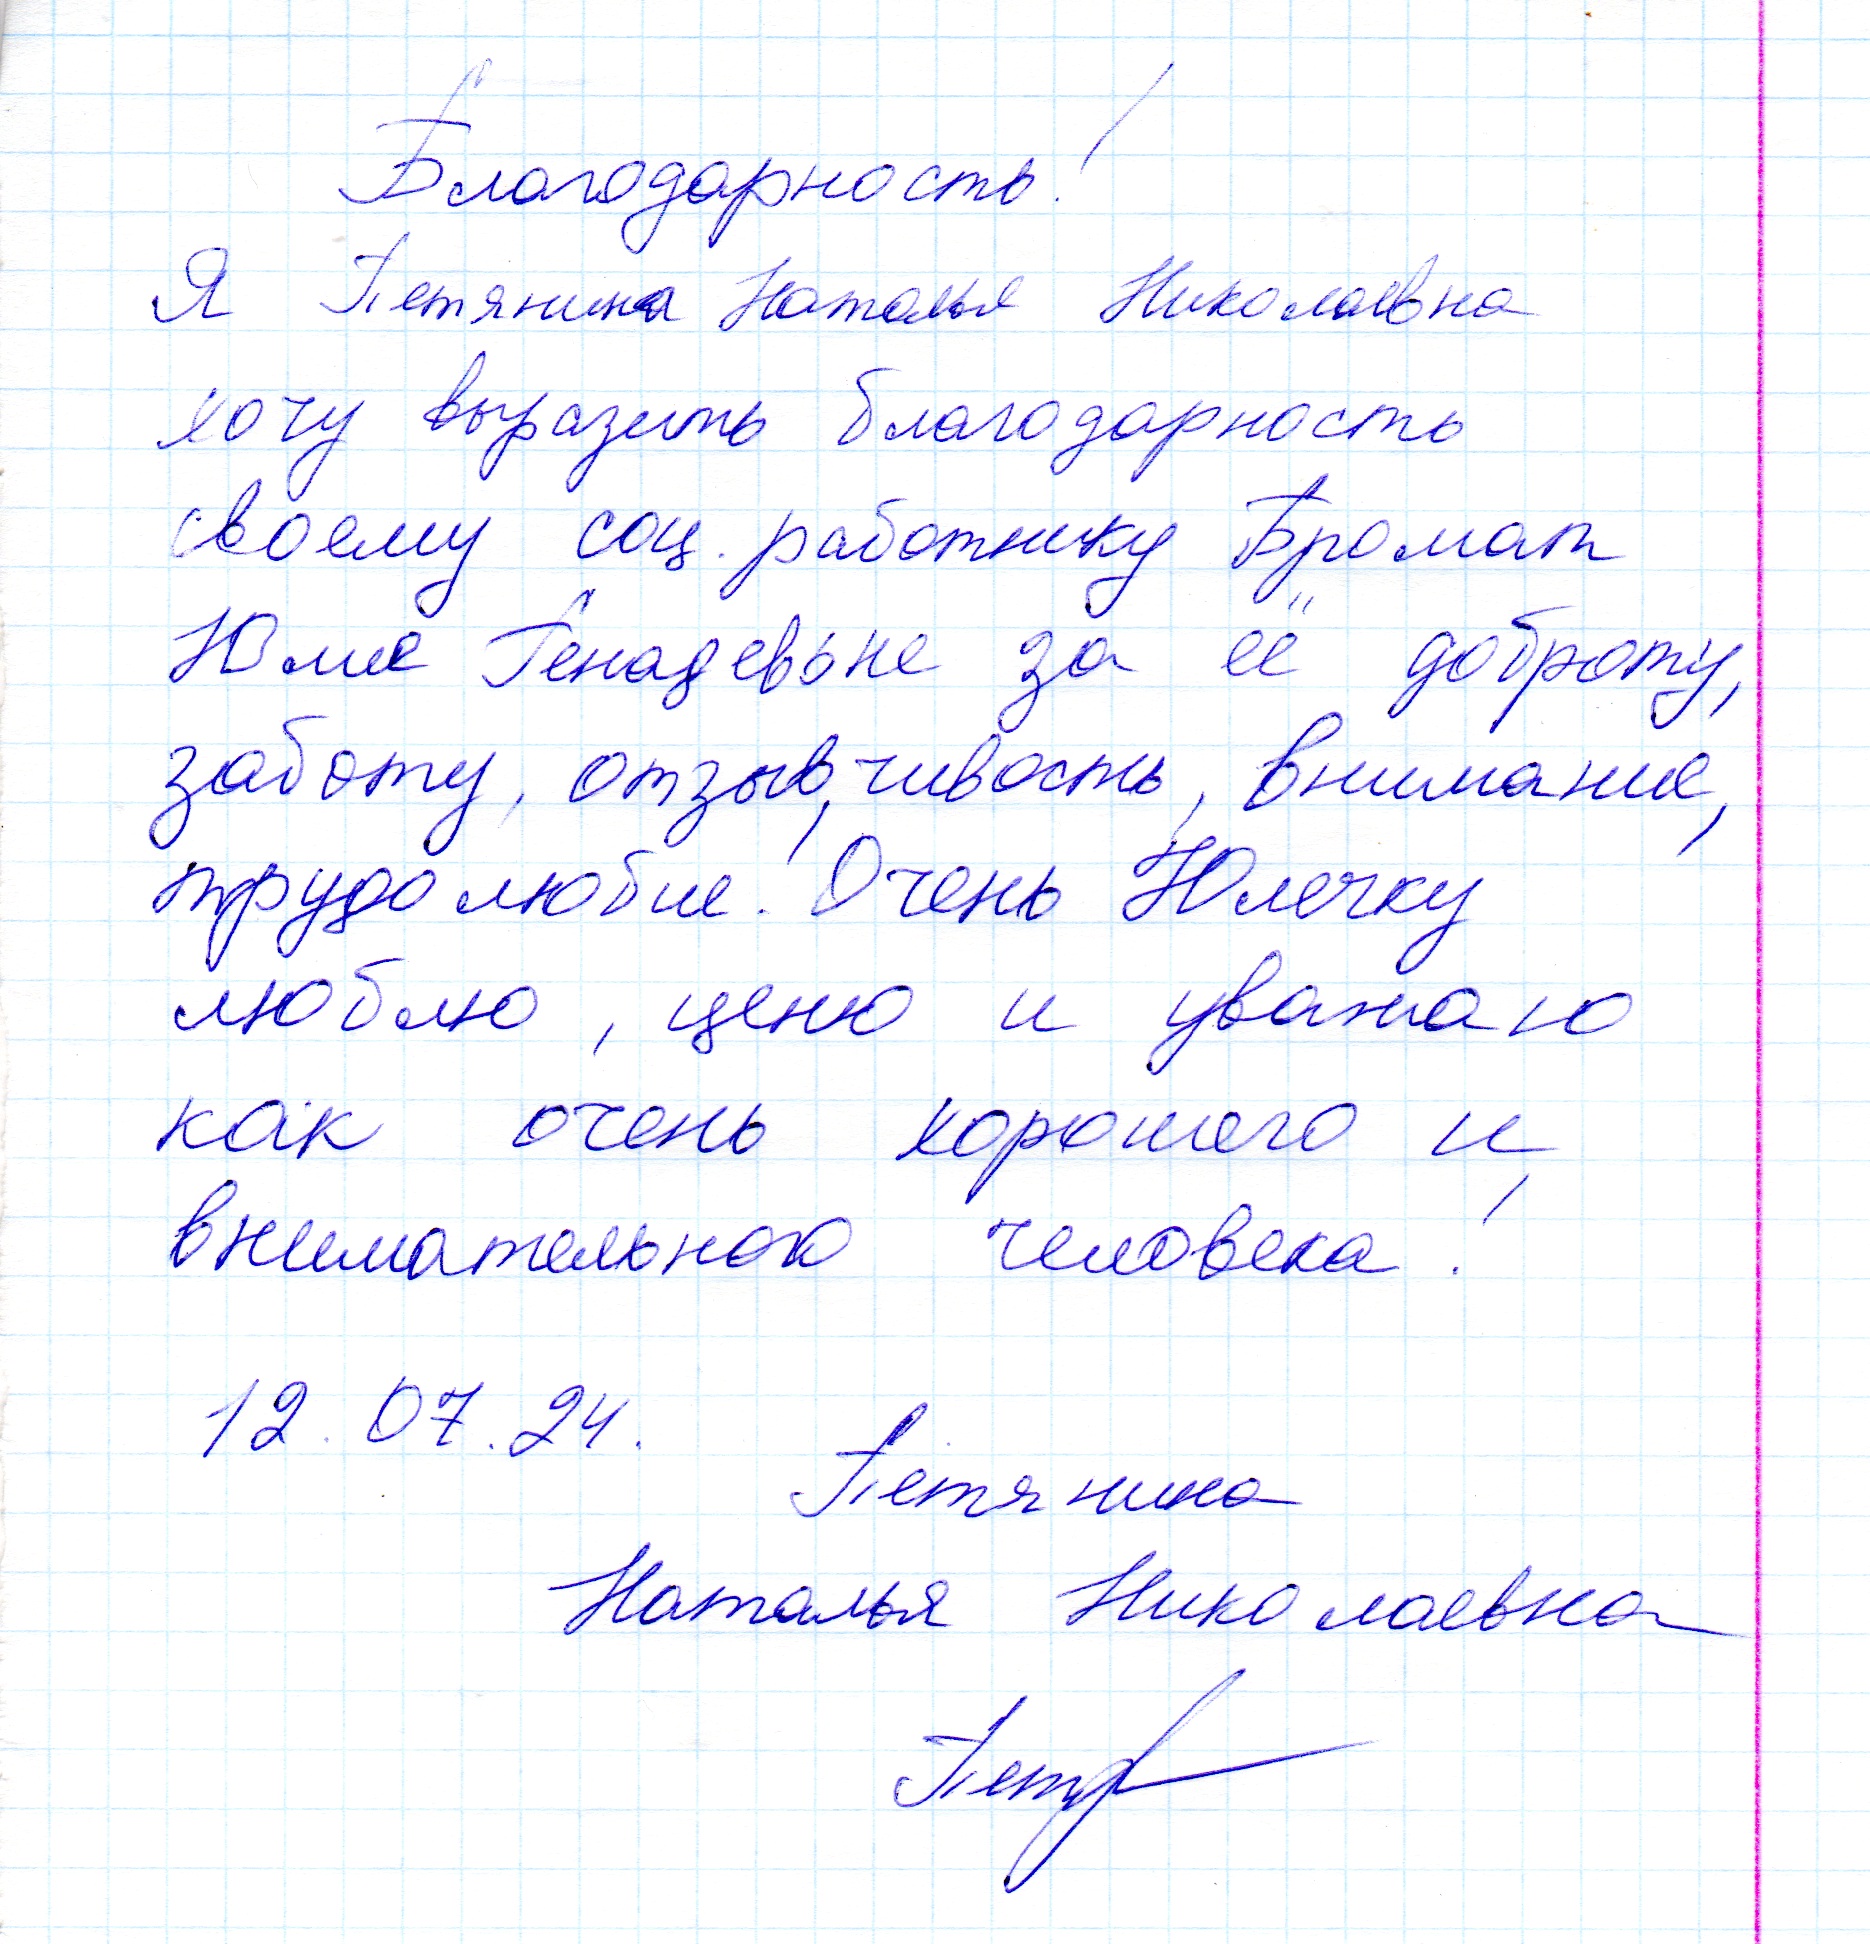 Благодарность!
Я Петянина Наталья Николаевна
хочу выразить благодарность
своему соц. работнику Громак
Юлие Генадевьне за её доброту,
заботу, отзывчивость, внимание,
трудолюбие! Очень Юлечку
люблю, ценю и уважаю
как очень хорошего и
внимательного человека!
12.07.24.
Петянина
Наталья Николаевна